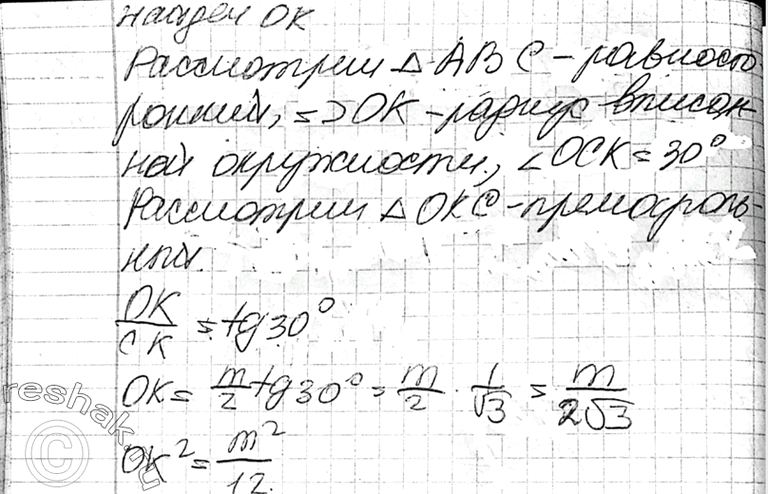 найдем OK
Рассмотрим △ABC - равносто
ронний, => OK - радиус вписан-
ной окружности, ∠OCK = 30°
Рассмотрим △OKC - прямоуголь-
ный.
OK/CK = tg30°
OK = m/2 tg30° = m/2 · 1/√3 = m/2√3
OK² = m²/12
reshak.ru
©